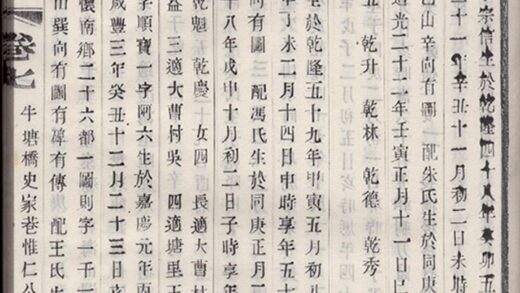 宗信生於乾隆四十八年癸卯五
二十一年辛丑十一月初二日未時
巳山辛向有圖 一配朱氏生於同庚
道光二十二年壬寅正月十一日巳
五 乾升 乾林 乾德 乾秀
生於乾隆五十九年甲寅五月初
年丁未二月十四日申時享年五十
向有圖 三配馮氏生於同庚正月二
十八年戊申十月初二日子時享年
乾魁 乾慶 女四 長適大曹村
益 三適大曹村吳 四適塘里王
字順寶一字阿六生於嘉慶元年丙
咸豐三年癸丑十二月二十三日亥
懷南鄉二十六都一圖則字一千一
山巽向有圖有碑有傳 配王氏生
卷七 牛塘橋史家巷惟仁公